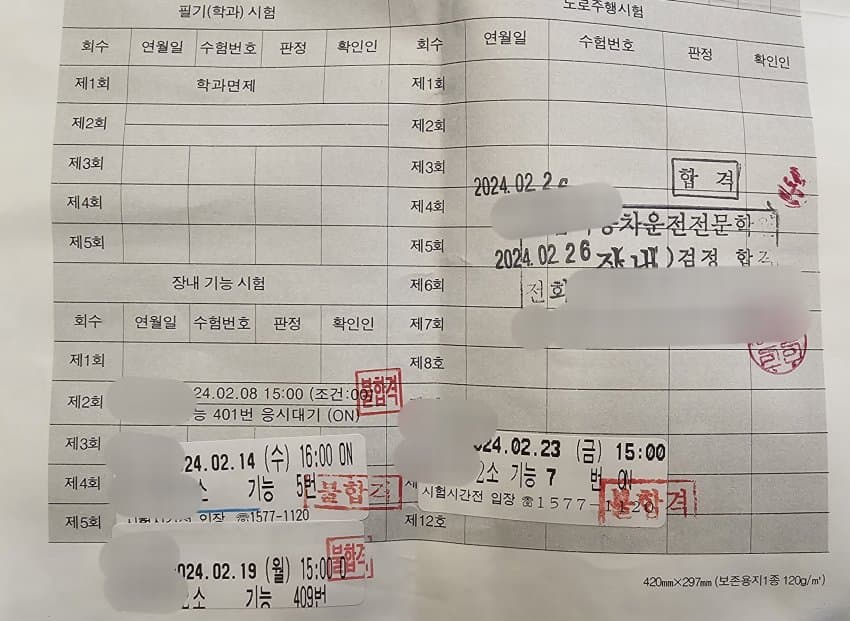 필기(학과) 시험
회수 연월일 수험번호 판정 확인인
제1회 학과면제
제2회
제3회
제4회
제5회
장내 기능 시험
회수 연월일 수험번호 판정 확인인
제1회
제2회 24.02.08 15:00 (조건:00)
401번 응시대기 (ON)
불합격
제3회
24.02.14 (수) 16:00 ON
제4회 기능 5번
불합격
제5회 입장 ☏1577-1120
24.02.19 (월) 15:00
기능 409번
불합격
도로주행시험
회수 연월일 수험번호 판정 확인인
제1회
제2회
제3회
2024.02.2
합 격
제4회
차운전전문학
제5회 2024.02 26 장내)검정 합
제6회 전화
제7회
제8회
24.02.23 (금) 15:00
기능 7 번 ON
시험시간전 입장 ☏1577-1120
불합격
제12회
420mm×297mm (보존용지1종 120g/㎡)